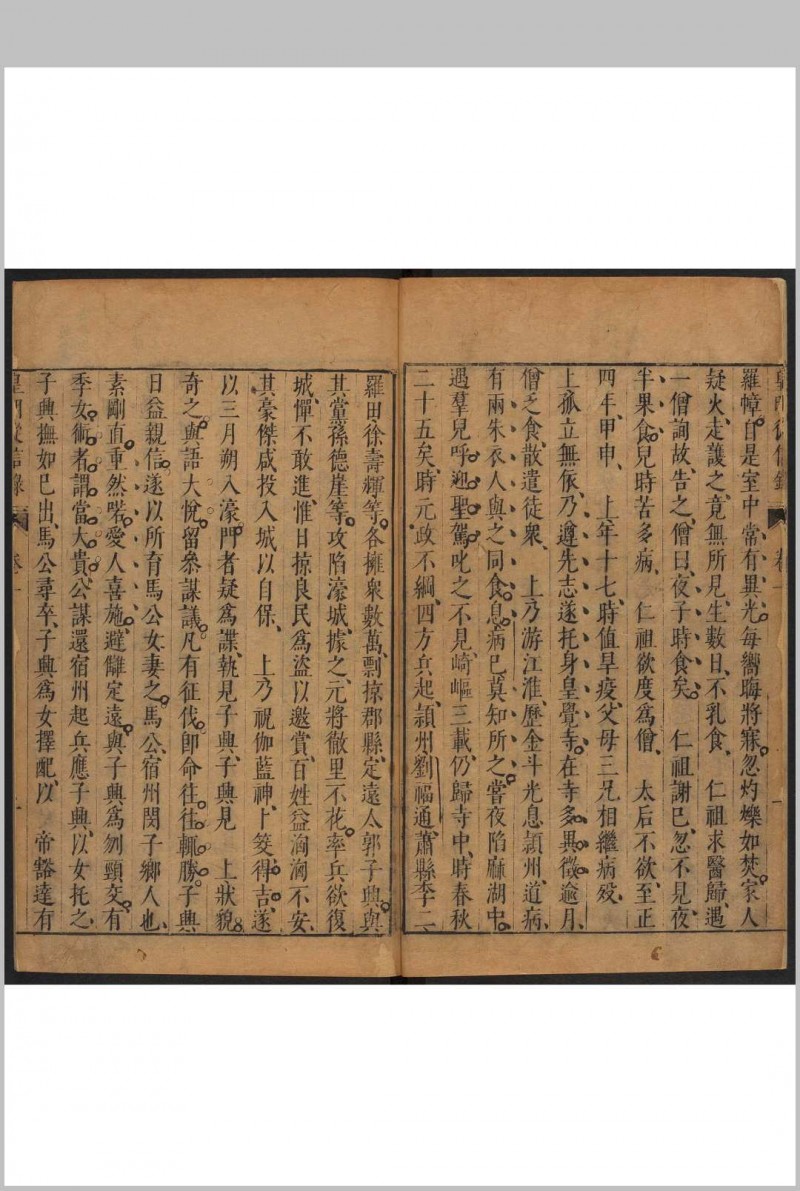 羅幃自是室中常有異光每嚮晦將寐忽灼爍如焚家人
疑火走護之竟無所見生數日不乳食 仁祖求醫歸遇
一僧詢故告之僧曰夜子時食矣 仁祖謝已忽不見夜
半果食兒時苦多病 仁祖欲度爲僧 太后不欲至正
四年甲申 上年十七時值旱疫父母三兄相繼病歿
上孤立無依乃遵先志遂托身皇覺寺在寺多異徵逾月
僧乏食散遣徒衆 上乃游江淮歷金斗光息潁州道病
有兩朱衣人與之同食息病已莫知所之嘗夜陷麻湖中
遇羣兒呼迎聖駕叱之不見崎嶇三載仍歸寺中時春秋
二十五矣時元政不綱四方兵起潁州劉福通蕭縣李二
羅田徐壽輝等各擁衆數萬剽掠郡縣定遠人郭子興與
其黨孫德崖等攻陷濠城據之元將徹里不花率兵欲復
城憚不敢進惟日掠良民爲盜以邀賞百姓益洶洶不安
其豪傑咸投入城以自保 上乃祝伽藍神卜筊得吉遂
以三月朔入濠門者疑爲諜執見子興子興見 上狀貌
奇之與語大悅留參謀議凡有征伐卽命往往輒勝子興
日益親信遂以所育馬公女妻之馬公宿州閔子鄉人也
素剛直重然喏愛人喜施避讎定遠與子興爲刎頸交有
季女術者謂當大貴公謀還宿州起兵應子興以女托之
子興撫如己出馬公尋卒子興爲女擇配以 帝豁達有